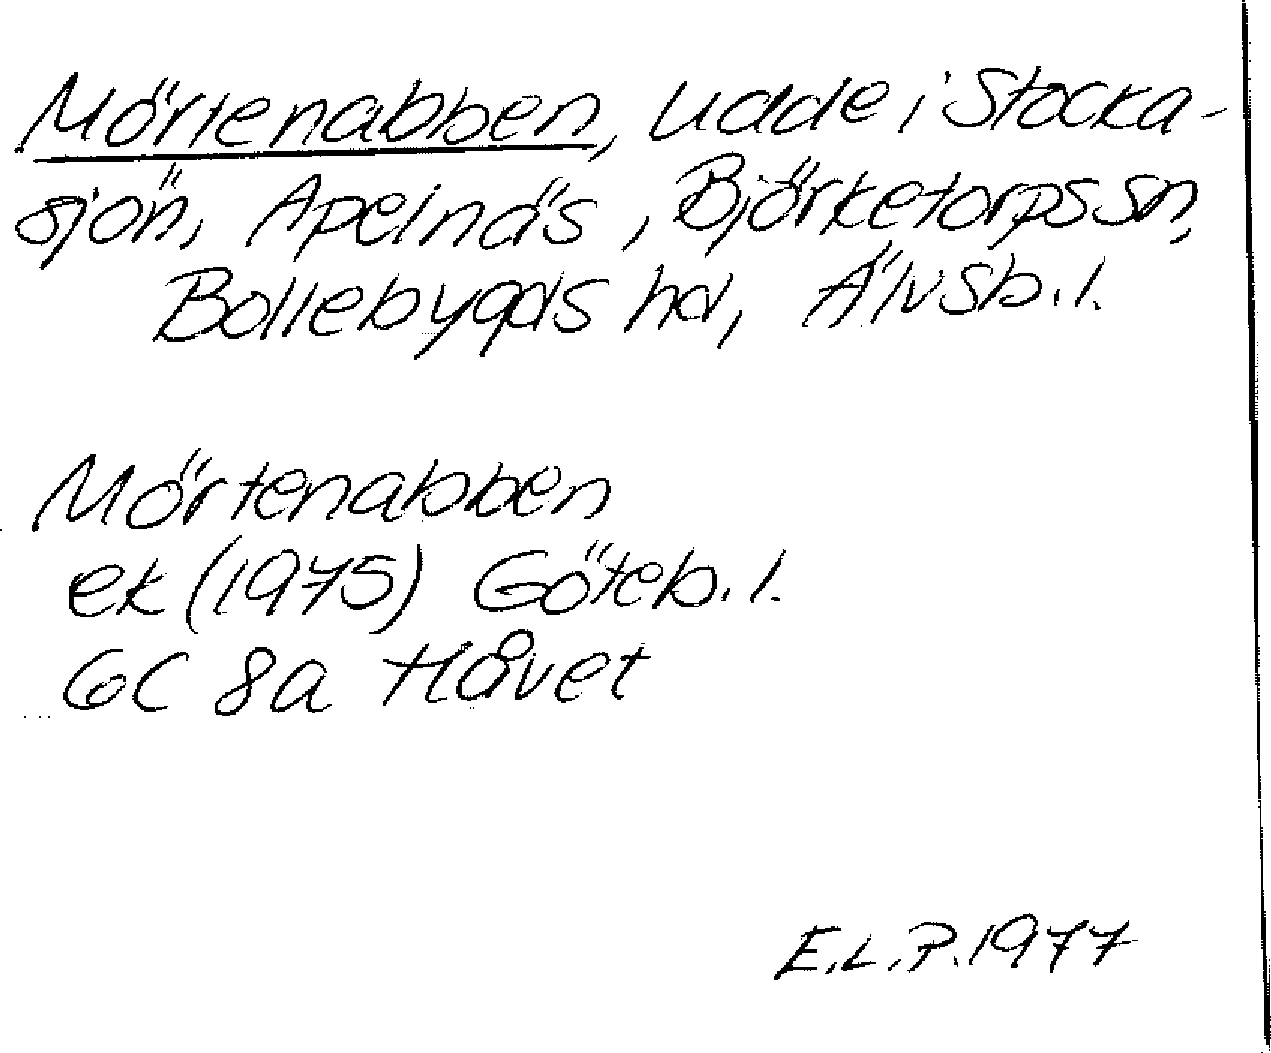 Mörtenabben, udde i Stocka-
sjön, Apelnäs, Björketorps sn,
Bollebygds hd, Älvsb. l.
Mörtenabben
ek (1975) Göteb. l.
GC 8a Håvet
E.L.P. 1977